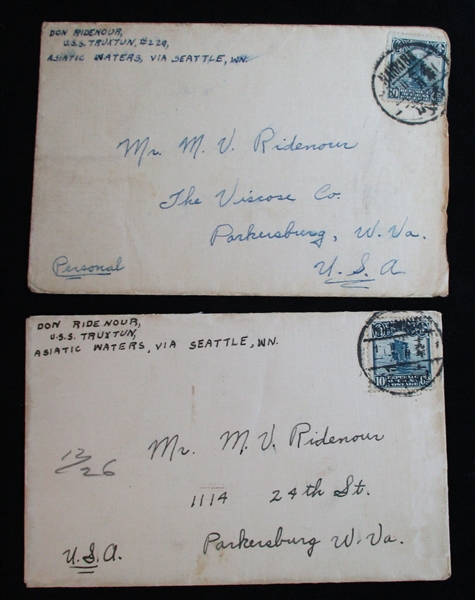 DON RIDENOUR,
U.S.S. TRUXTUN, #229,
ASIATIC WATERS, VIA SEATTLE, WN.
10
Mr. M. V. Ridenour
The Viscose Co.
Parkersburg, W. Va.
U.S.A.
Personal
DON RIDENOUR,
U.S.S. TRUXTUN,
ASIATIC WATERS, VIA SEATTLE, WN.
10
12/26
Mr. M. V. Ridenour
1114 24th St.
Parkersburg W. Va.
U.S.A.